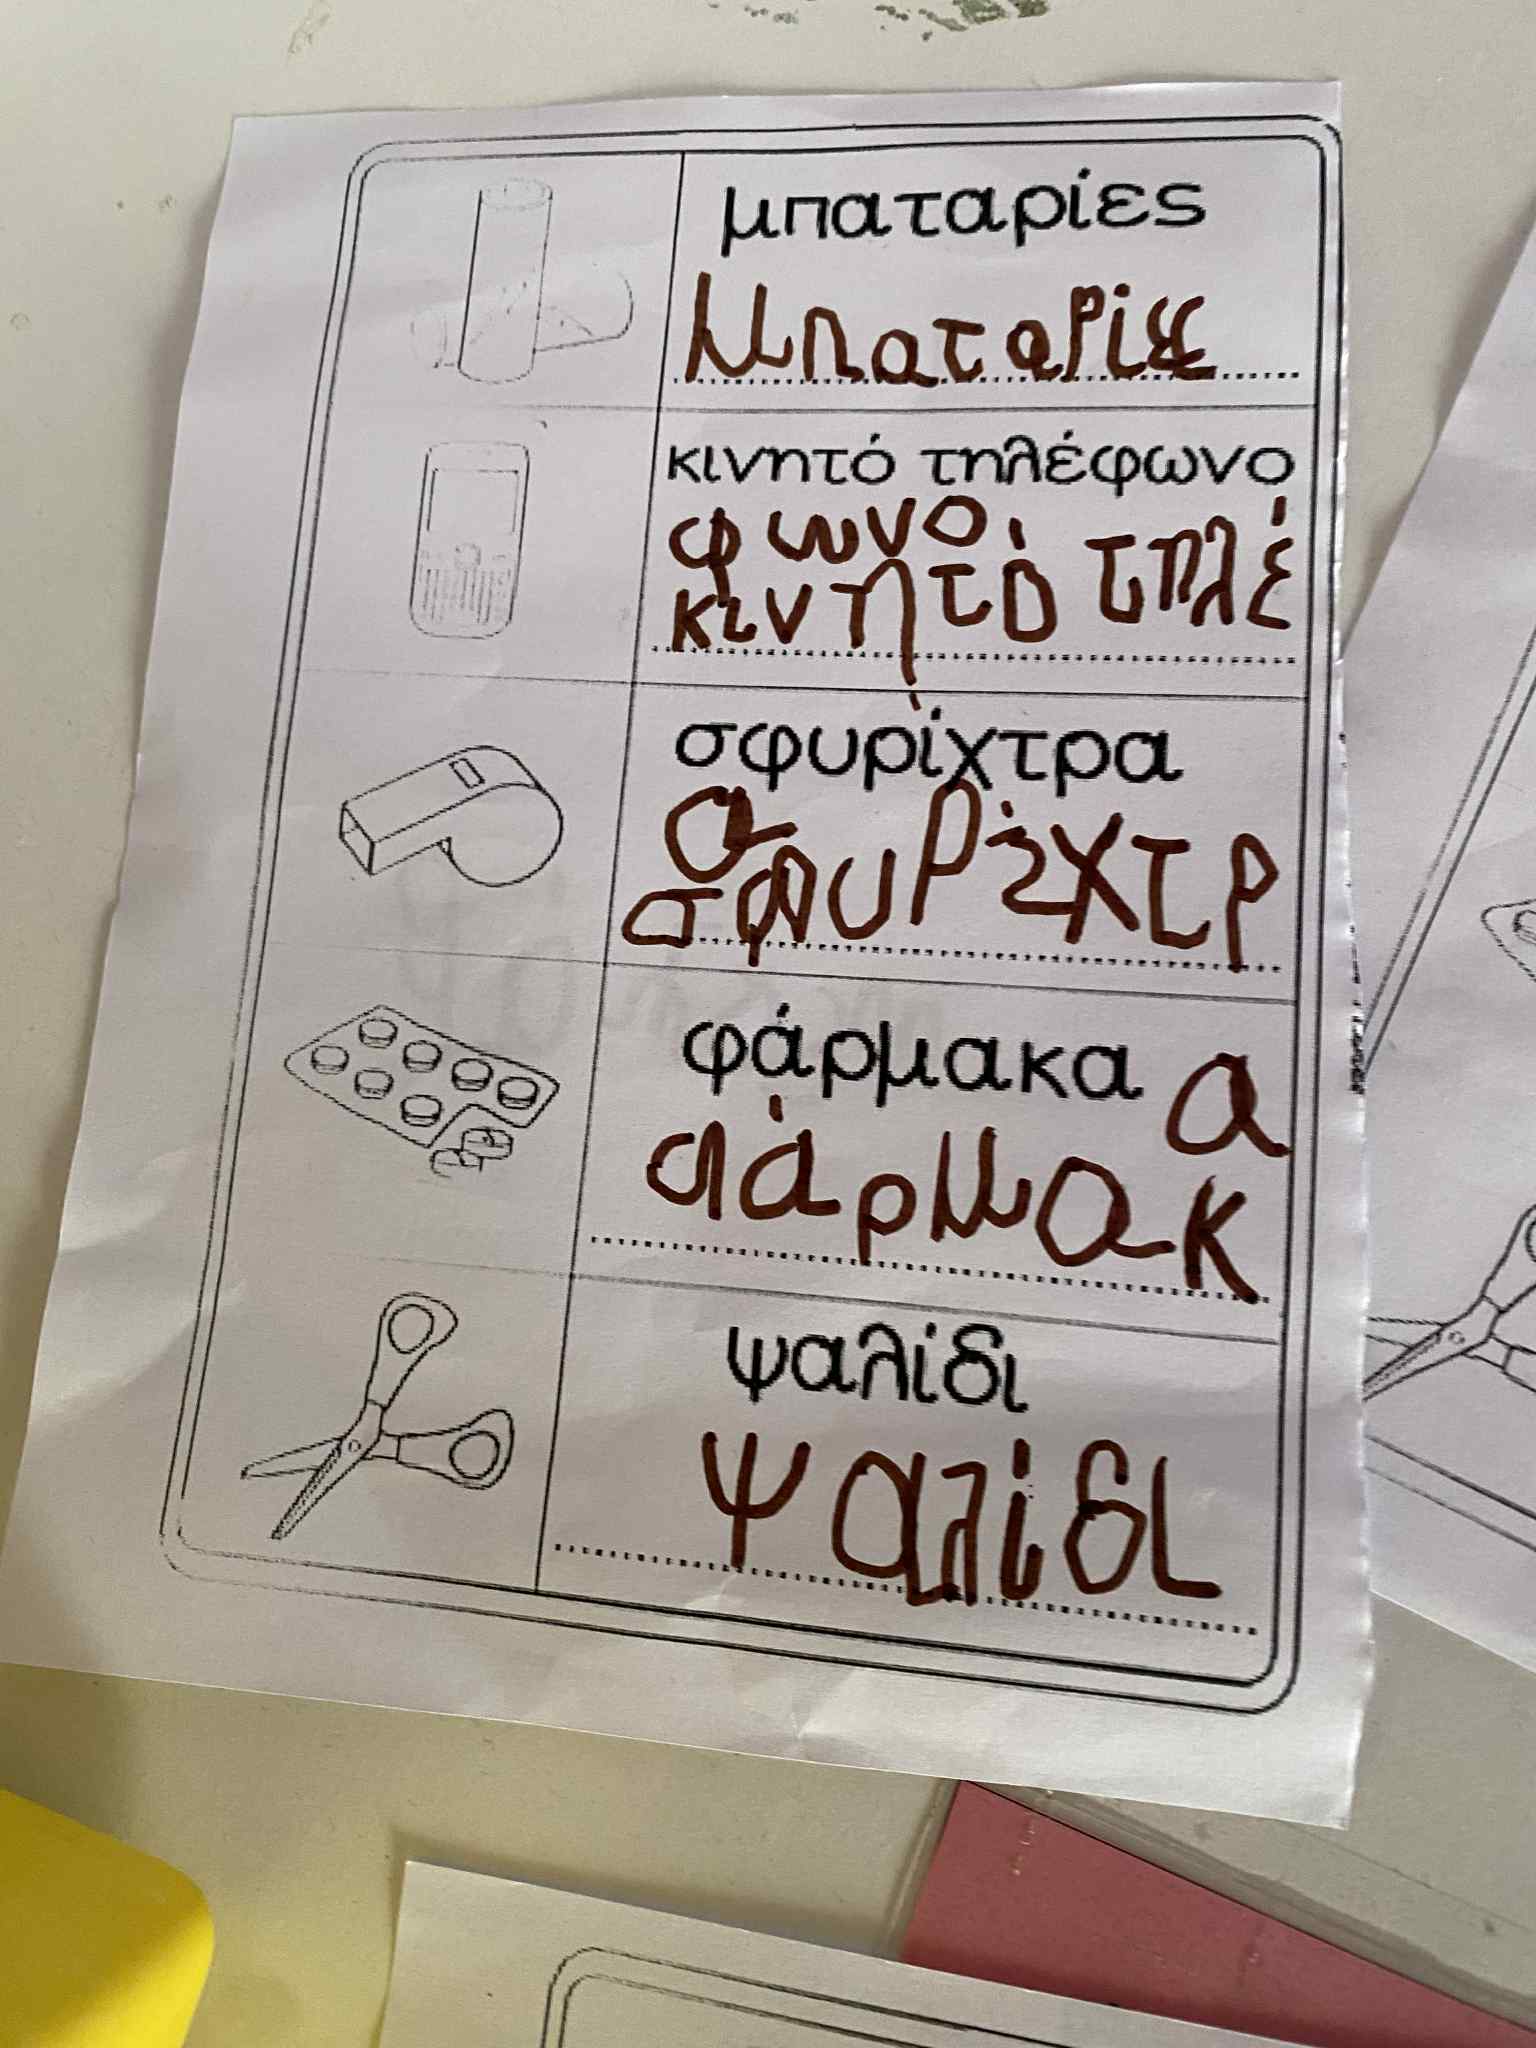 μπαταρίες
μπαταρίες
κινητό τηλέφωνο
φωνο
κινητό τηλέ
σφυρίχτρα
α
σφυρίχτρ
φάρμακα
α
φάρμακ
ψαλίδι
ψαλίδι